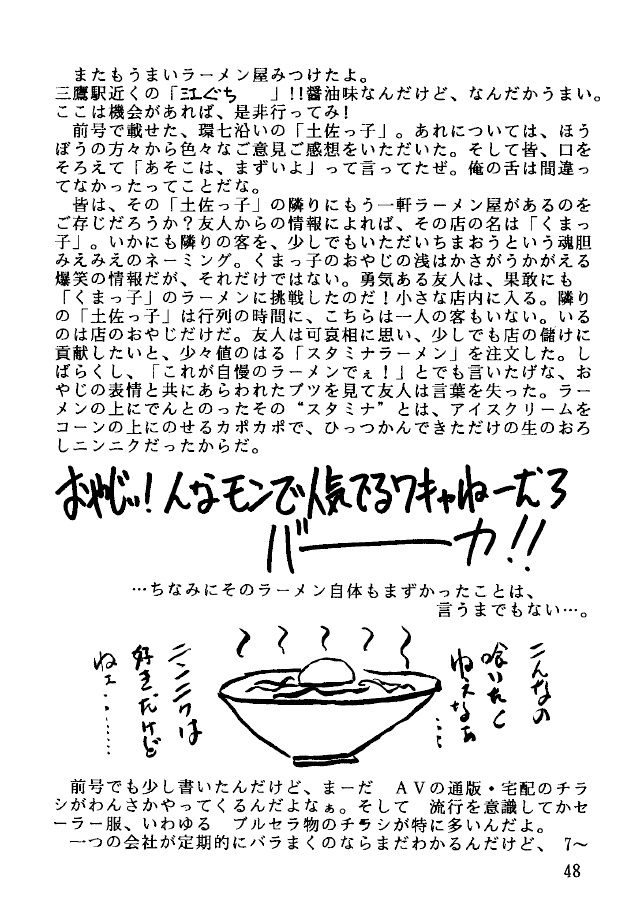 またもうまいラーメン屋みつけたよ。
三鷹駅近くの「江ぐち　　」!!醤油味なんだけど、なんだかうまい。
ここは機会があれば、是非行ってみ!
前号で載せた、環七沿いの「土佐っ子」。あれについては、ほう
ぼうの方々から色々なご意見ご感想をいただいた。そして皆、口を
そろえて「あそこは、まずいよ」って言ってたぜ。俺の舌は間違っ
てなかったってことだな。
皆は、その「土佐っ子」の隣りにもう一軒ラーメン屋があるのを
ご存じだろうか?友人からの情報によれば、その店の名は「くまっ
子」。いかにも隣りの客を、少しでもいただいちまおうという魂胆
みえみえのネーミング。くまっ子のおやじの浅はかさがうかがえる
爆笑の情報だが、それだけではない。勇気ある友人は、果敢にも
「くまっ子」のラーメンに挑戦したのだ!小さな店内に入る。隣り
の「土佐っ子」は行列の時間に、こちらは一人の客もいない。いる
のは店のおやじだけだ。友人は可哀相に思い、少しでも店の儲けに
貢献したいと、少々値のはる「スタミナラーメン」を注文した。し
ばらくし、「これが自慢のラーメンでぇ!」とでも言いたげな、お
やじの表情と共にあらわれたブツを見て友人は言葉を失った。ラー
メンの上にでんとのったその“スタミナ”とは、アイスクリームを
コーンの上にのせるカポカポで、ひっつかんできただけの生のおろ
しニンニクだったからだ。
おやじッ!んなモンで人気でるワキャねーだろ
バーーーカ!!
…ちなみにそのラーメン自体もまずかったことは、
言うまでもない…。
こんなの
喰いたく
ねぇなぁ
…
ニンニクは
好きだけど
ねェ………
前号でも少し書いたんだけど、まーだ　ＡＶの通販・宅配のチラ
シがわんさかやってくるんだよなぁ。そして　流行を意識してかセ
ーラー服、いわゆる　ブルセラ物のチラシが特に多いんだよ。
一つの会社が定期的にバラまくのならまだわかるんだけど、7～
48